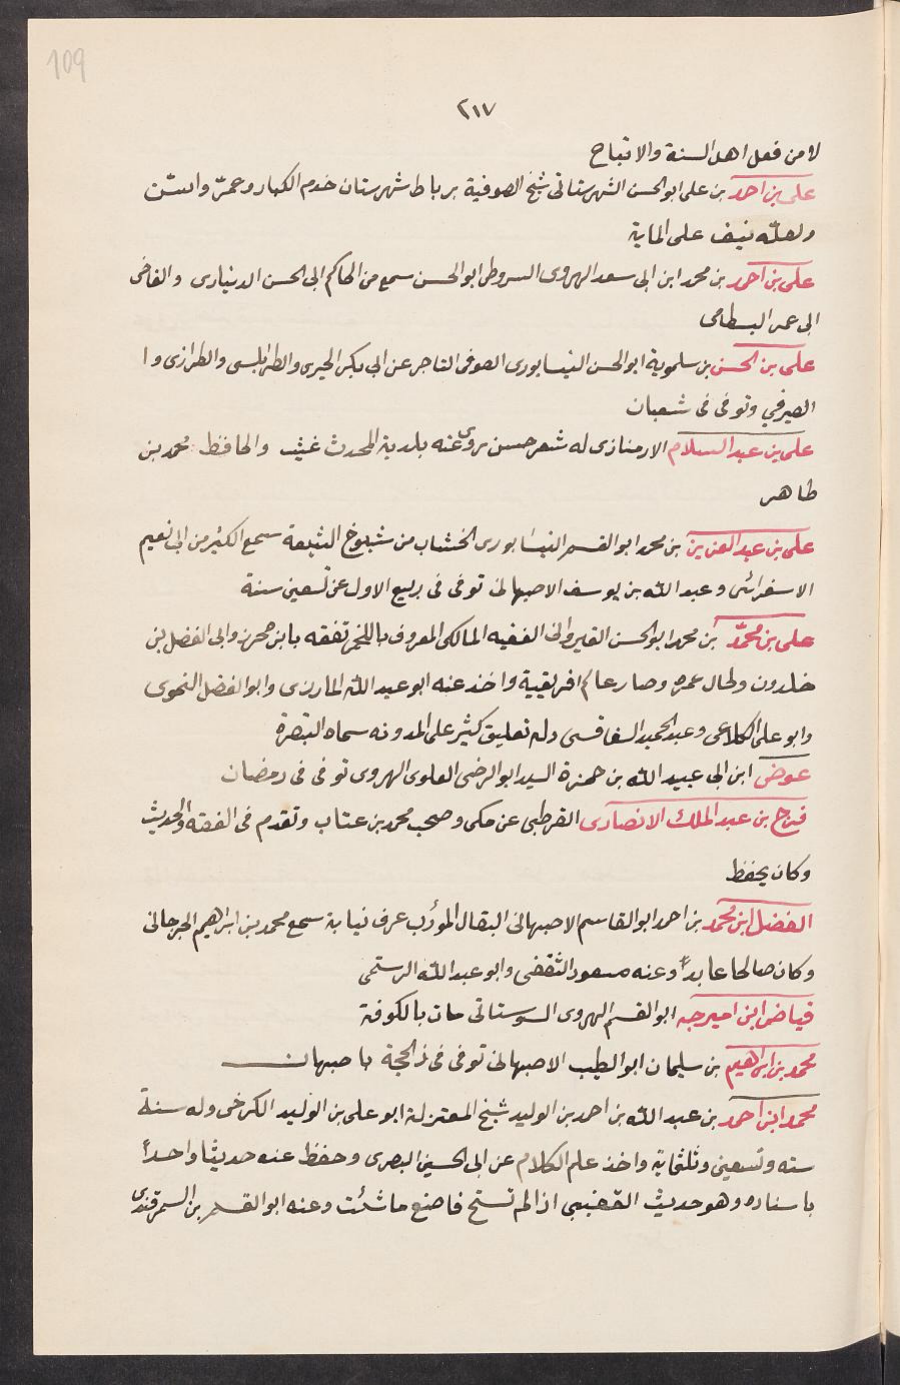 109
٢١٧
لا من فعل اهل السنة والاتباع
على بن احمد بن على ابو الحسن الشهرستانى شيخ الصوفية برباط شهرستان خدم الكبار وعمّر واسنّ
ولعله نيف على الماية
على بن احمد بن محمد ابن ابى سعد الهروى السروطى ابو الحسن سمع من الحاكم ابى الحسن الدينارى والقاضى
ابى عمر البسطامى
على بن الحسن بن سلموية ابو الحسن النيسابورى الصوفى التاجر عن ابى بكر الحيرى والطرابلسى والطرازى وا
الصيرفي وتوفى فى شعبان
على بن عبد السلام الارمنازى له شعر حسن روى عنه بلدية المحدث غيث والحافظ محمد بن
طاهر
على بن عبد العزيز بن محمد ابو القسم النيسابورى الخشاب من شيوخ الشيعة سمع الكثير من ابى نعيم
الاسفرائنى وعبد الله بن يوسف الاصبهانى توفى فى ربيع الاول عن تسعين سنة
على بن محمّد بن محمد ابو الحسن القيروانى الفقيه المالكى المعروف باللخمى تفقه بابن محرز وابى الفضل بن
خلدون وطال عمره وصار عالم افريقية واخذ عنه ابو عبد الله المازرى وابو الفضل النحوى
وابو على الكلاعى وعبد الحميد السفاقسى وله تعليق كثير على المدونه سماه التبصرة
عوض ابن ابى عبيد الله بن حمزة السيد ابو الرضى العلوى الهروى توفى فى رمضان
فرج بن عبد الملك الانصارى القرطبى عن مكى وصحب محمد بن عتاب وتقدم فى الفقه والحديث
وكان يحفظ
الفضل ابن محمد بن احمد ابو القاسم الاصبهانى البقال المؤدب عرف نيابة سمع محمد بن ابراهيم الجرجانى
وكان صالحا عابداً وعنه مسعود الثقفى وابو عبد الله الرستمى
فياض ابن اميرجه ابو القسم الهروى السوستانى مات بالكوفة
محمد بن ابراهيم بن سليمان ابو الطيب الاصبهانى توفى فى ذالحجة باصبهان
محمد ابن احمد بن عبد الله بن احمد بن الوليد شيخ المعتزلة ابو على بن الوليد الكرخى وله سنة
سته وتسعين وثلثماية واخذ علم الكلام عن ابى الحسين البصرى وحفظ عنه حديثا واحداً
باسناده وهو حديث القعنبى اذا لم تستح فاصنع ما شئت وعنه ابو القسم بن السمرقندى